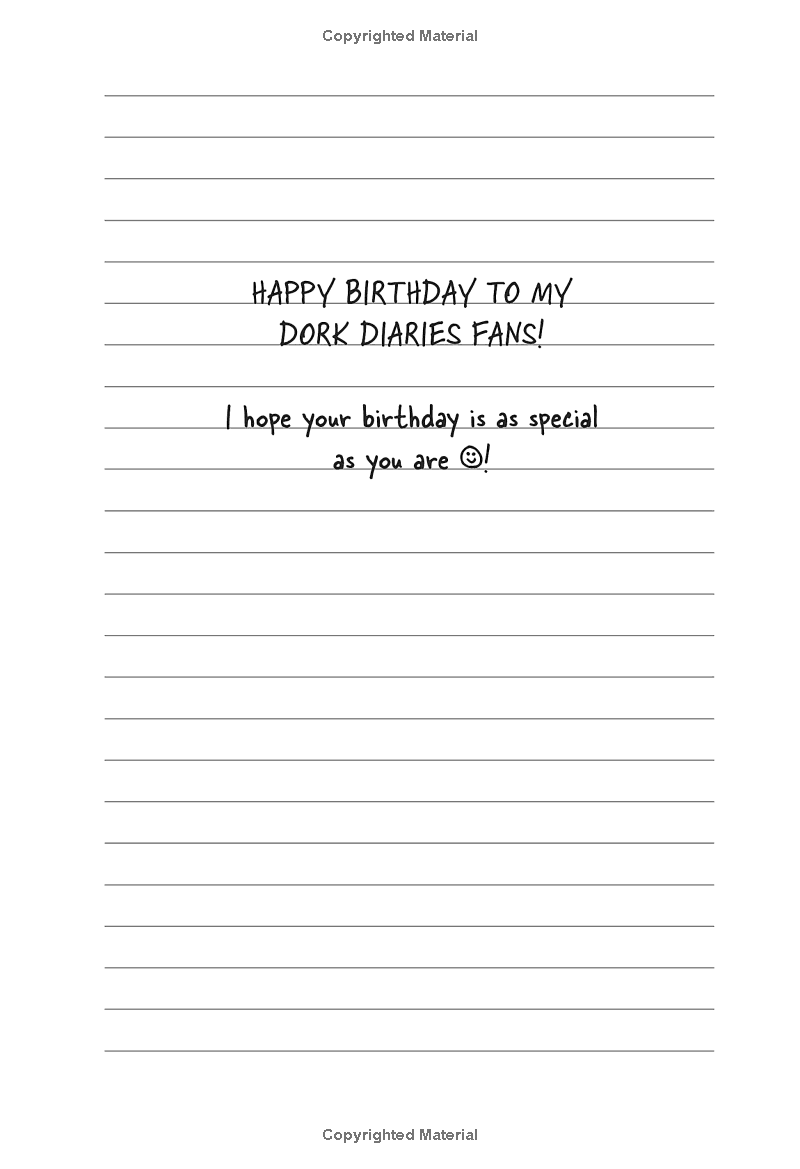 Copyrighted Material
HAPPY BIRTHDAY TO MY
DORK DIARIES FANS!
I hope your birthday is as special
as you are ☺!
Copyrighted Material